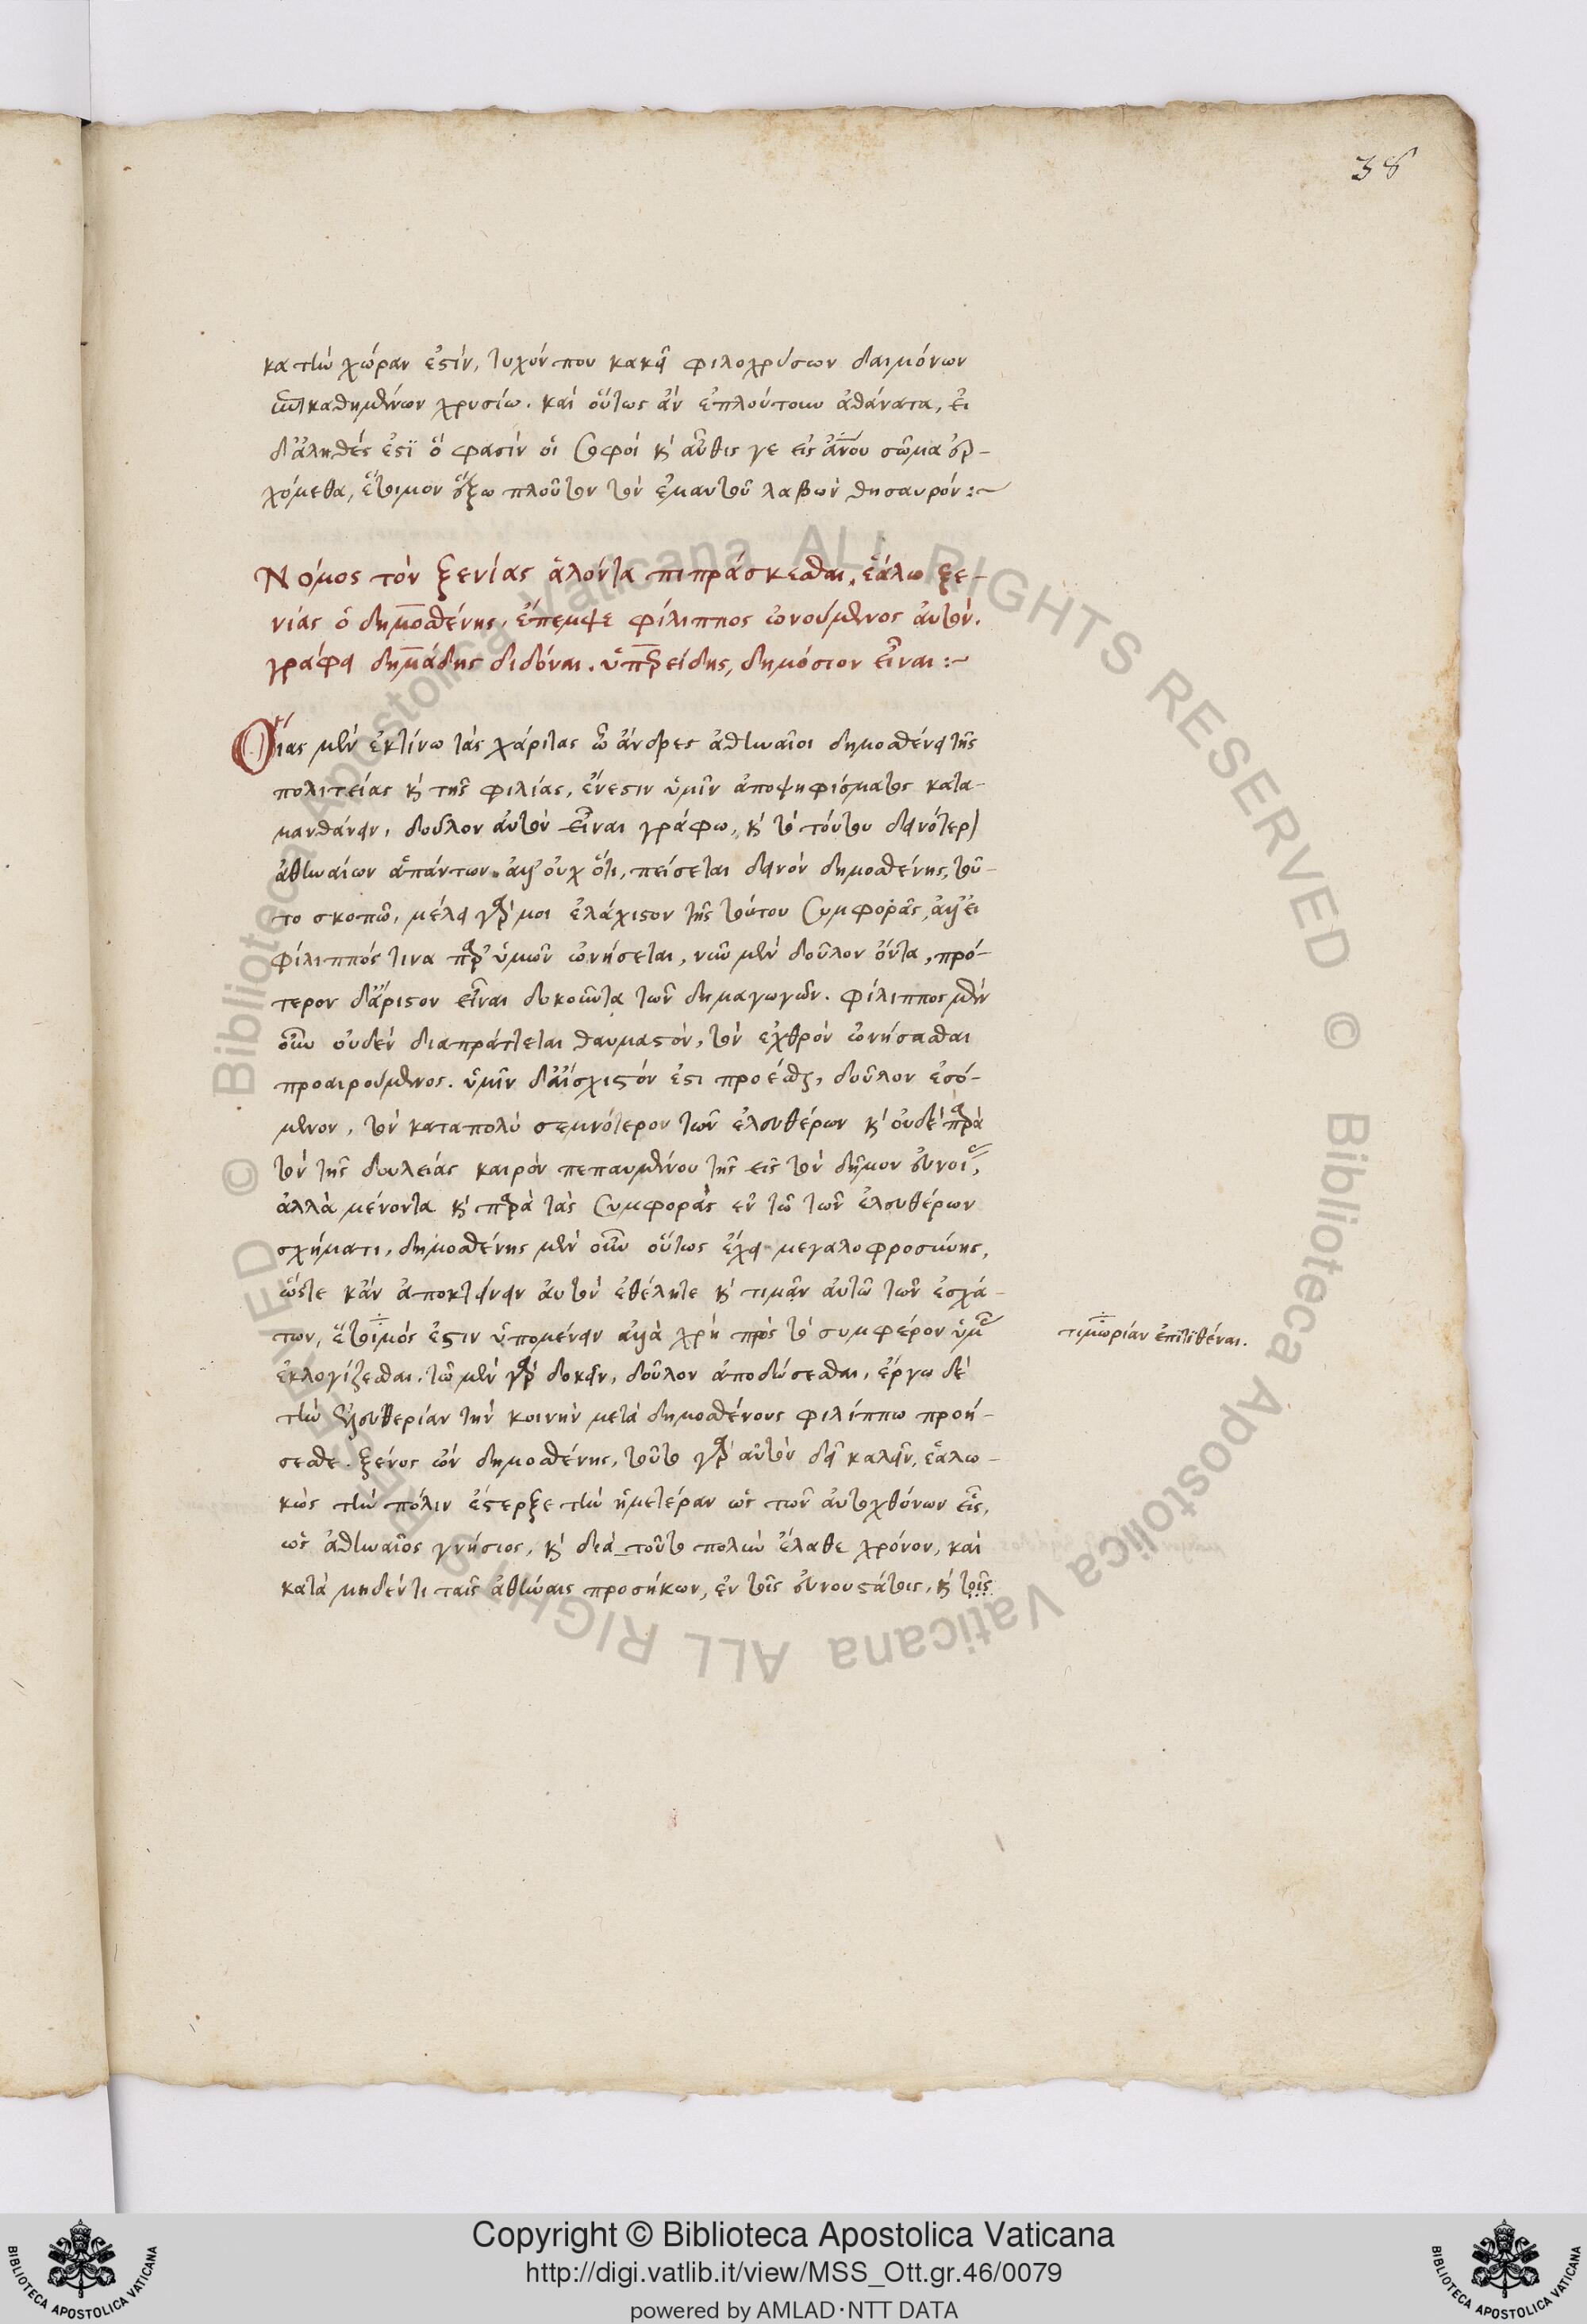 38
κα τὴν χώραν ἐστὶν, τυχόν που κἀκεῖ φιλοχρύσων δαιμόνων
ἐπικαθημένων χρυσίω. καὶ οὕτως ἂν ἐπλούτουν ἀθάνατα, εἰ
δ' ἀληθές ἐστι ὅ φασὶν οἱ σοφοὶ καὶ αὖθις γε εἰς ἀνου σῶμα ἐρ-
χόμεθα, ἕτοιμον ἕξω πλοῦτον τὸν ἐμαυτοῦ λαβὼν θησαυρόν:~
Νόμος τὸν ξενίας ἁλόντα πιπράσκεσθαι. ἑάλω ξε-
νίας ὁ δημοσθένης. ἔπεμψε φίλιππος ὠνούμενος αὐτόν.
γράφει δημάδης διδόναι. ὑπερείδης, δημόσιον εἶναι:~
Οἵας μὲν ἐκτίνω τὰς χάριτας ὦ ἄνδρες ἀθηναῖοι δημοσθένει τῆς
πολιτείας καὶ τῆς φιλίας, ἔνεστιν ὑμῖν ἀπὸ ψηφίσματος κατα-
μανθάνειν. δοῦλον αὐτὸν εἶναι γράφω, καὶ τὸ τούτου δεινότερον
ἀθηναίων ἁπάντων. ἀλλ' οὐχ ὅτι, πείσεται δεινὸν δημοσθένης, τοῦ-
το σκοπῶ, μέλει γάρ μοι ἐλάχιστον τῆς τούτου συμφορᾶς, ἀλλ' εἰ
φίλιππός τινα παρ' ὑμῶν ὠνήσεται, νῦν μὲν δοῦλον ὄντα, πρό-
τερον δ' ἄριστον εἶναι δοκοῦντα τῶν δημαγωγῶν. φίλιππος μὲν
οὖν οὐδὲν διαπράττεται θαυμαστόν, τὸν ἐχθρὸν ὠνήσασθαι
προαιρούμενος. ὑμῖν δ' αἴσχιστόν ἐστι προέσθαι, δοῦλον ἐσό-
μενον, τὸν καταπολὺ σεμνότερον τῶν ἐλευθέρων καὶ οὐδὲ παρὰ
τὸν τῆς δουλείας καιρὸν πεπαυμένου τῆς εἰς τὸν δῆμον εὐνοίας,
ἀλλὰ μένοντα καὶ παρὰ τὰς συμφορὰς ἐν τῶ τῶν ἐλευθέρων
σχήματι, δημοσθένης μὲν οὖν οὕτως ἔχει μεγαλοφροσύνης,
ὥστε κἂν ἀποκτείνειν αὐτὸν ἐθέλητε καὶ τιμᾶν αὐτῶ τῶν ἐσχά-
των, ἕτοιμός ἐστιν ὑπομένειν ἀλλὰ χρὴ πρὸς τὸ συμφέρον ὑμᾶς
τιμωρίαν ἐπιτιθέναι.
ἐκλογίζεσθαι. τῶ μὲν γὰρ δοκεῖν, δοῦλον ἀποδώσεσθαι, ἔργω δὲ
τὴν ἐλευθερίαν τὴν κοινὴν μετὰ δημοσθένους φιλίππω προή-
σεσθε. ξένος ὢν δημοσθένης, τοῦτο γὰρ αὐτὸν δεῖ καλεῖν, ἑαλω-
κὼς τὴν πόλιν ἔστερξε τὴν ἡμετέραν ὡς τῶν αὐτοχθόνων εἷς,
ὡς ἀθηναῖος γνήσιος, καὶ διὰ τοῦτο πολὺν ἔλαθε χρόνον, καὶ
κατὰ μηδέν τι ταῖς ἀθήναις προσήκων, ἐν τοῖς εὐνουστάτοις, καὶ τοῖς